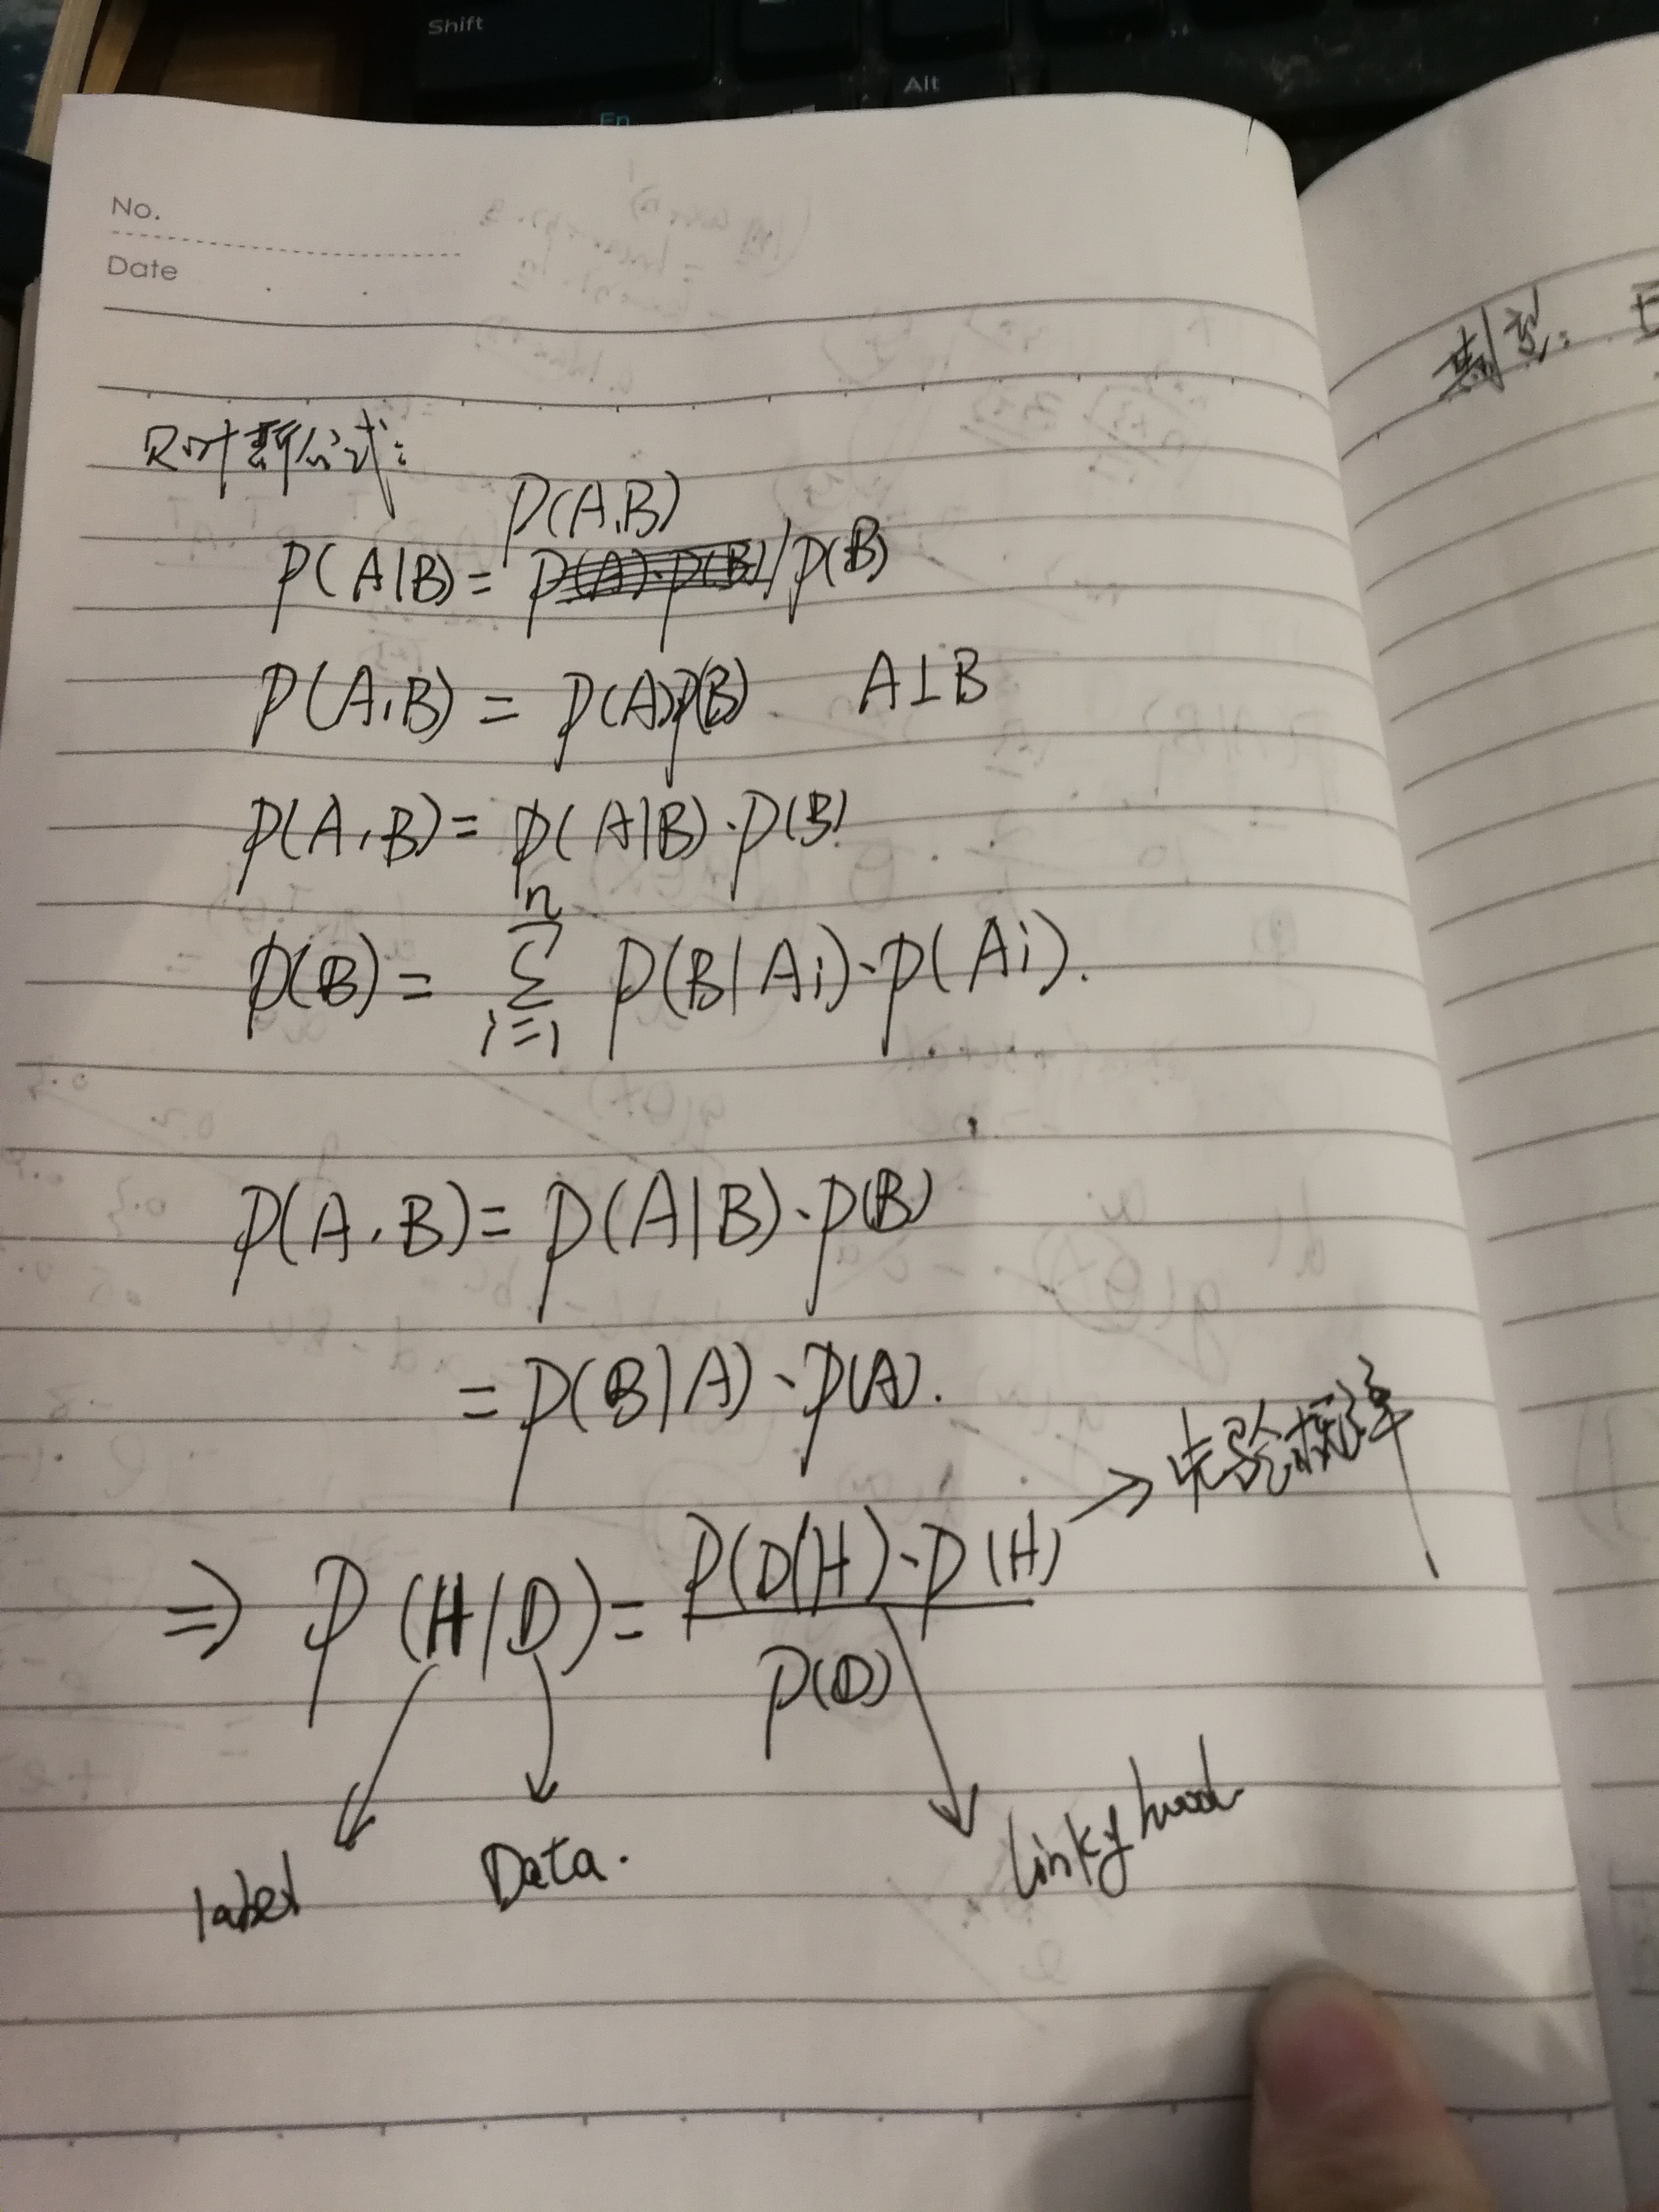 Shift
Alt
En
No.
Date
贝叶斯公式:
P(A,B)
P(A|B)= /P(B)
P(A,B) = P(A)P(B) A⊥B
P(A,B)= P(A|B)·P(B)
n
P(B)= Σ P(B|Ai)·P(Ai).
i=1
P(A,B)= P(A|B)·P(B)
= P(B|A)·P(A).
→ 先验概率
P(D|H)·P(H)
⇒ P(H|D)=
P(D)
label Data. linkyhood
类型: